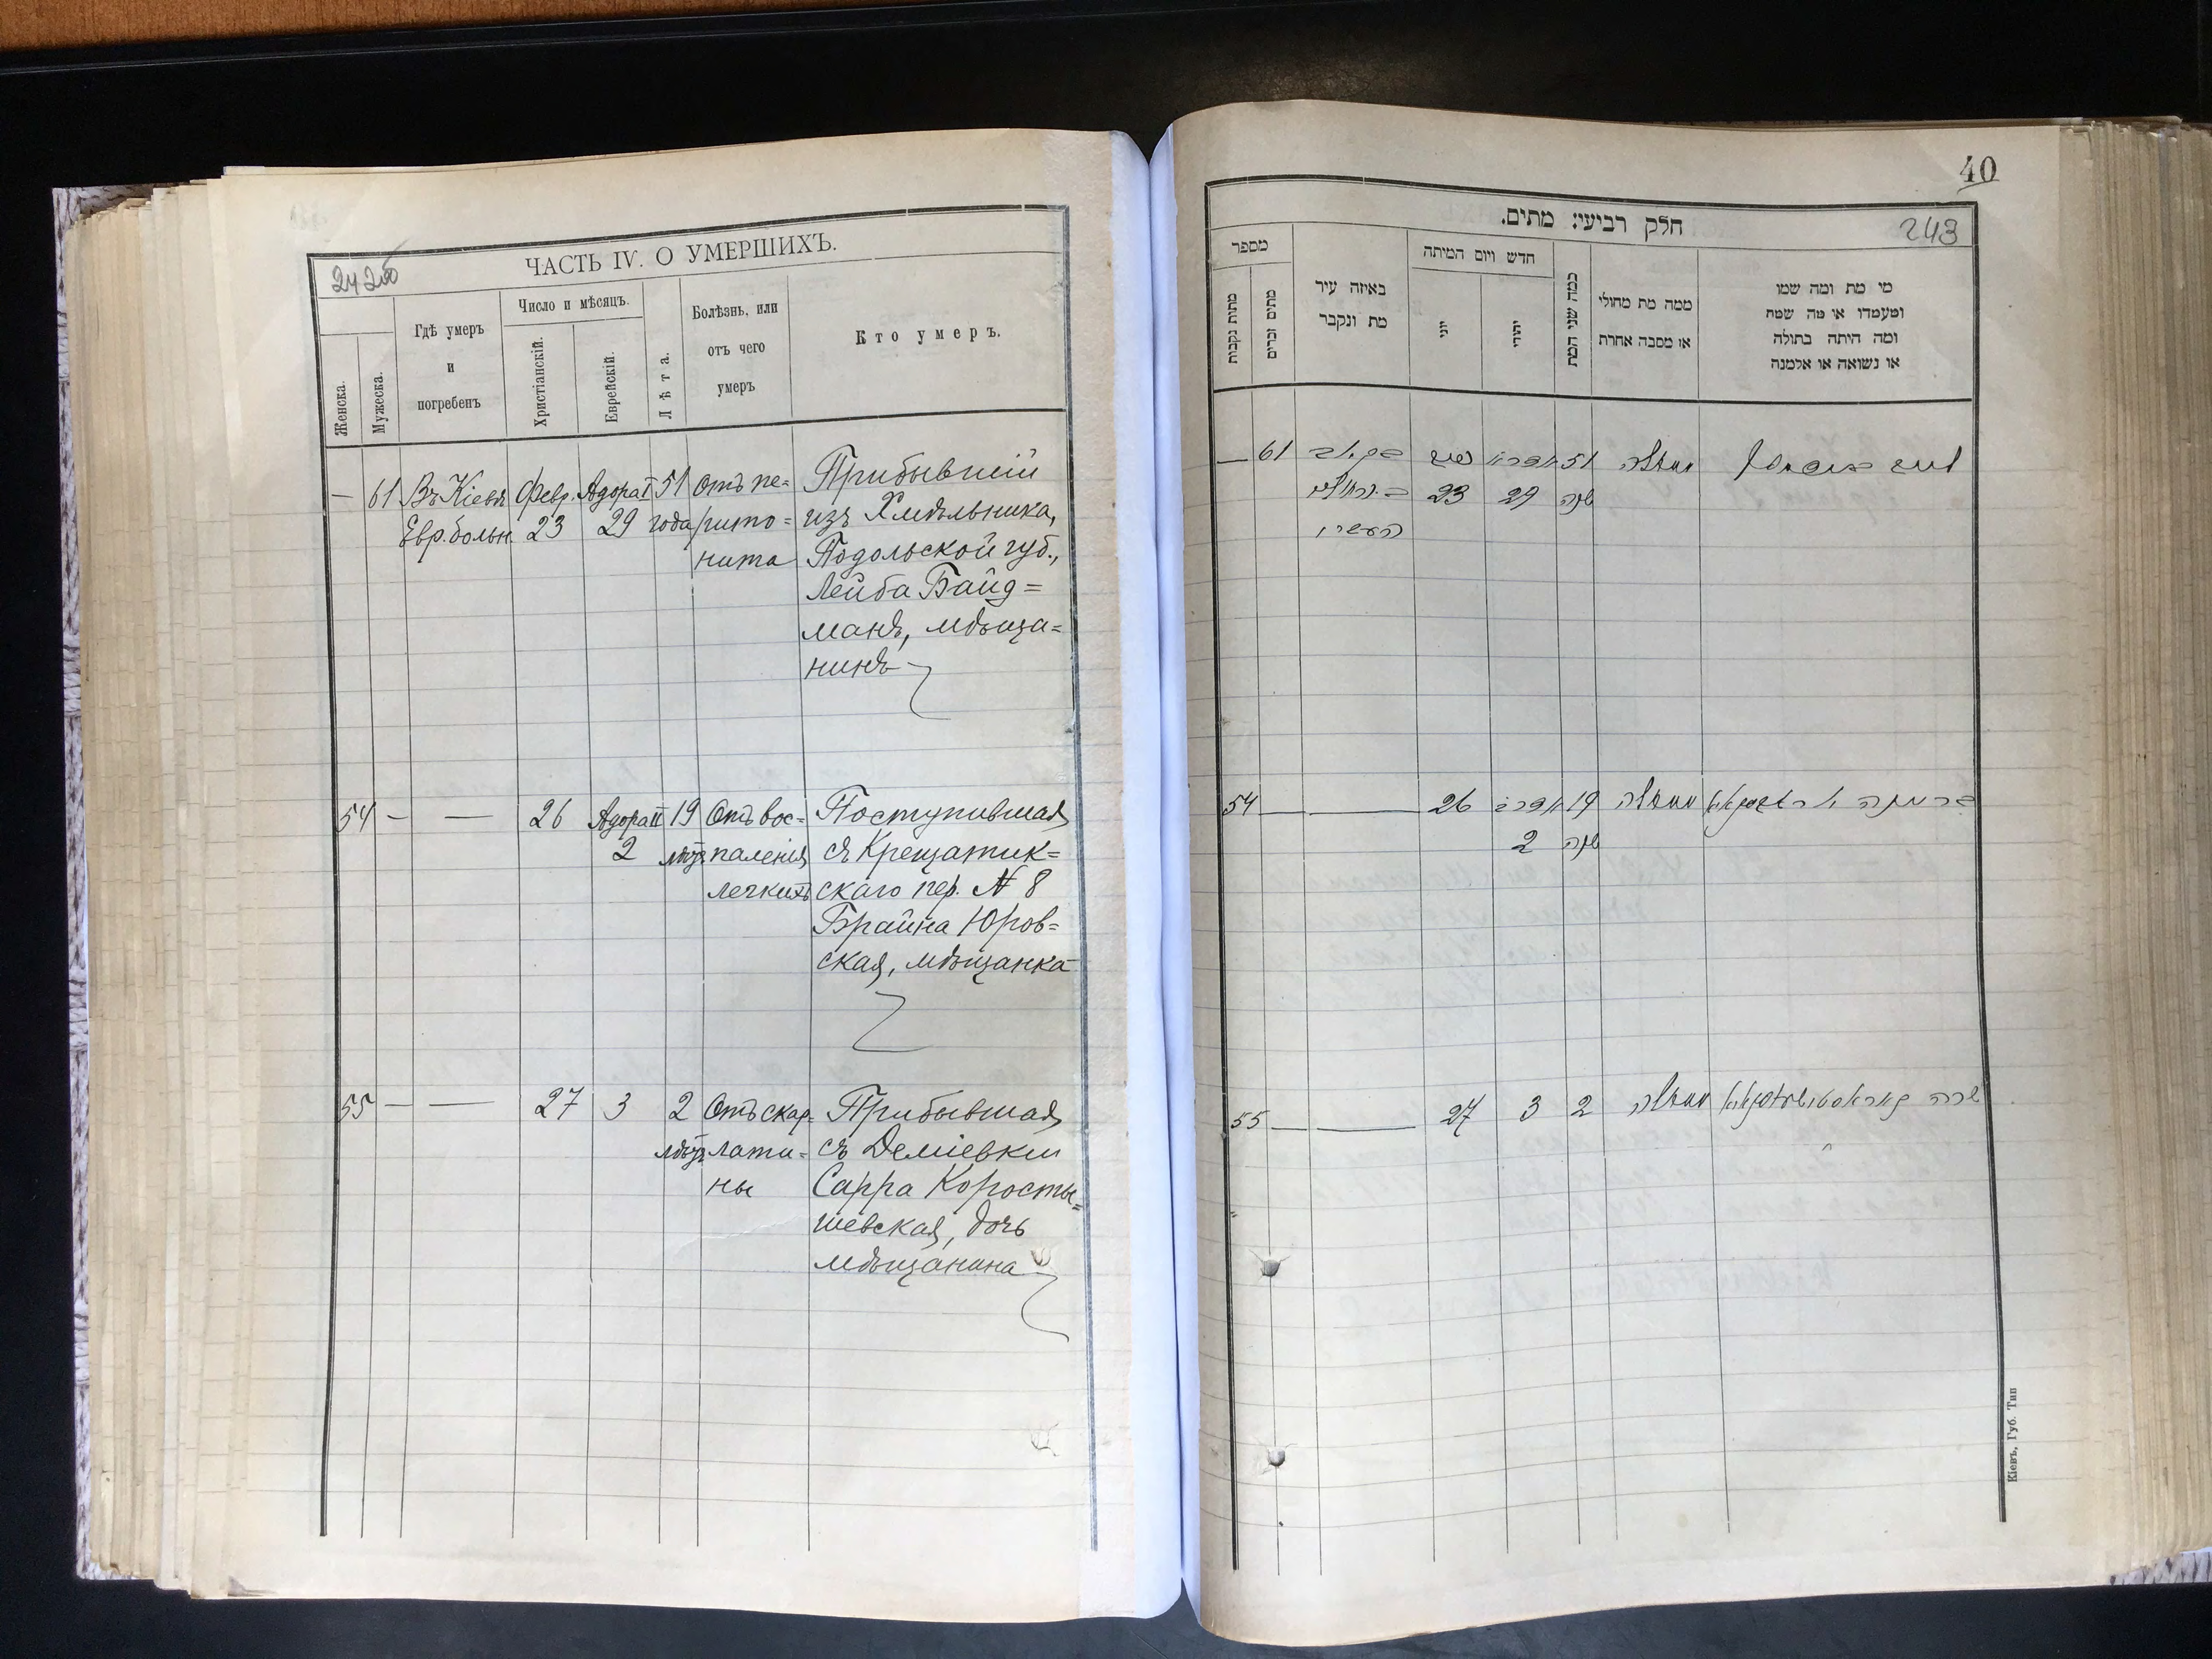 242об
ЧАСТЬ IV. О УМЕРШИХЪ.
Женска.
Мужеска.
Гдѣ умеръ
и
погребенъ
Число и мѣсяцъ.
Христіанскій.
Еврейскій.
Лѣта.
Болѣзнь, или
отъ чего
умеръ
Кто умеръ.
— 61 Въ Кіевѣ Февр. Адора I 51 Отъ пе= Прибывшій
Евр. больн. 23 29 года ритo= изъ Хмѣльника,
нита Подольской губ.,
Лейба Байд=
манъ, мѣща=
нинъ
54 — — 26 Адора II 19 Отъ вос= Поступившая
2 лѣтъ паленія съ Крещатик=
легкихъ скаго пер. № 8
Брайна Юров=
ская, мѣщанка
55 — — 27 3 2 Отъ скар= Прибывшая
лѣтъ лати= съ Деміевки
ны Сарра Коросты=
шевская, дочь
мѣщанина
40
243
חלק רביעי: מתים.
מספר
מתות נקבות
מתים זכרים
באיזה עיר
מת ונקבר
חדש ויום המיתה
יוני
יהודי
כמה שני המת
ממה מת מחולי
או מסבה אחרת
מי מת ומה שמו
ומעמדו או מה שמה
ומה היתה בתולה
או נשואה או אלמנה
— 61 51
23 29 שנה
54 — — 26 19
2 שנה
55 — — 27 3 2 שרה
Кіевъ, Губ. Тип